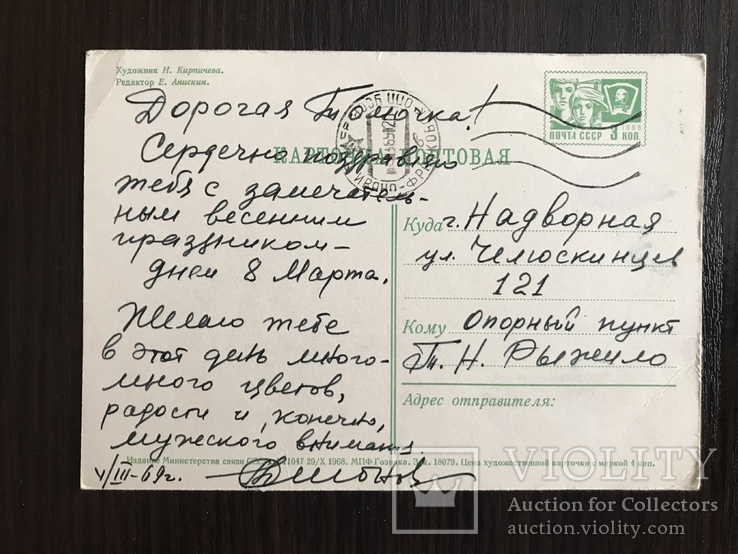 Художник Н. Кирпичева.
Редактор Е. Анискин.
ПОЧТА СССР
1966
3 КОП.
КАРТОЧКА ПОЧТОВАЯ
Дорогая Толючка!
Сердечно поздравляю
тебя с замечатель-
ным весенним
праздником –
днем 8 Марта.
Желаю тебе
в этот день много-
много цветов,
радости и, конечно,
мужского внимания.
V/III-69г.
Куда г. Надворная
ул. Челюскинцев
121
Кому Опорный пункт
Т. Н. Рыжило
Адрес отправителя:
Издание Министерства связи 1047 29/X 1968. МПФ Гознака. Зак. 18079. Цена художественной карточки с маркой 4 коп.
VIOLITY
Auction for Collectors
auction.violity.com